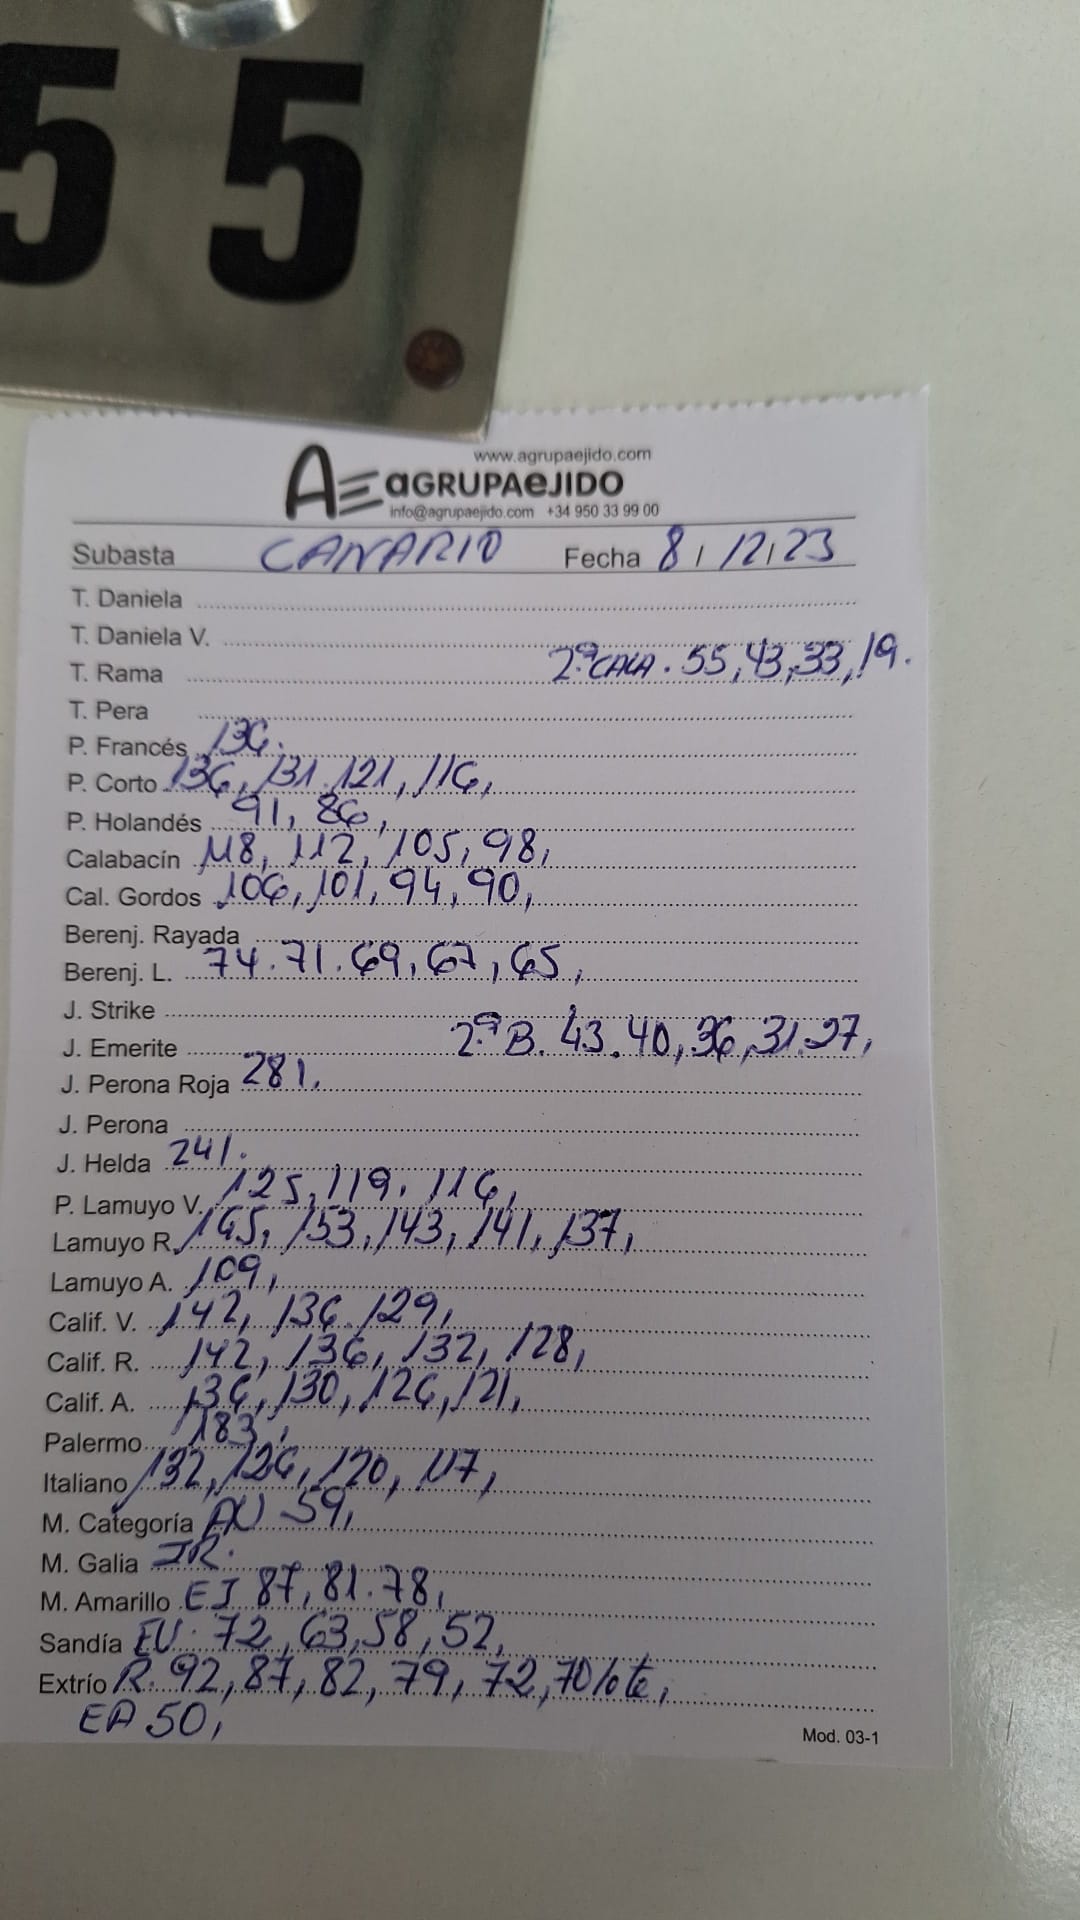 55
www.agrupaejido.com
AE AGRUPAEJIDO
info@agrupaejido.com +34 950 33 99 00
Subasta CANARIO Fecha 8 / 12 / 23
T. Daniela
T. Daniela V.
T. Rama 2ª CALA. 55, 43, 33, 19.
T. Pera
P. Francés 136.
P. Corto 136, 131. 121, 116,
P. Holandés 91, 86,
Calabacín 118, 112, 105, 98,
Cal. Gordos 106, 101, 94, 90,
Berenj. Rayada
Berenj. L. 74. 71. 69, 67, 65,
J. Strike
J. Emerite 2ª B. 43. 40, 36, 31. 27,
J. Perona Roja 281,
J. Perona
J. Helda 241.
P. Lamuyo V. 125, 119. 116,
Lamuyo R. 165, 153, 143, 141, 137,
Lamuyo A. 109,
Calif. V. 142, 136. 129,
Calif. R. 142, 136, 132, 128,
Calif. A. 136, 130, 126, 121,
Palermo 183,
Italiano 132, 126, 120, 117,
M. Categoría AU 59,
M. Galia IR.
M. Amarillo EI 87, 81. 78,
Sandía EU. 72, 63, 58, 52,
Extrío R. 92, 87, 82, 79, 72, 70 lote,
EA 50,
Mod. 03-1